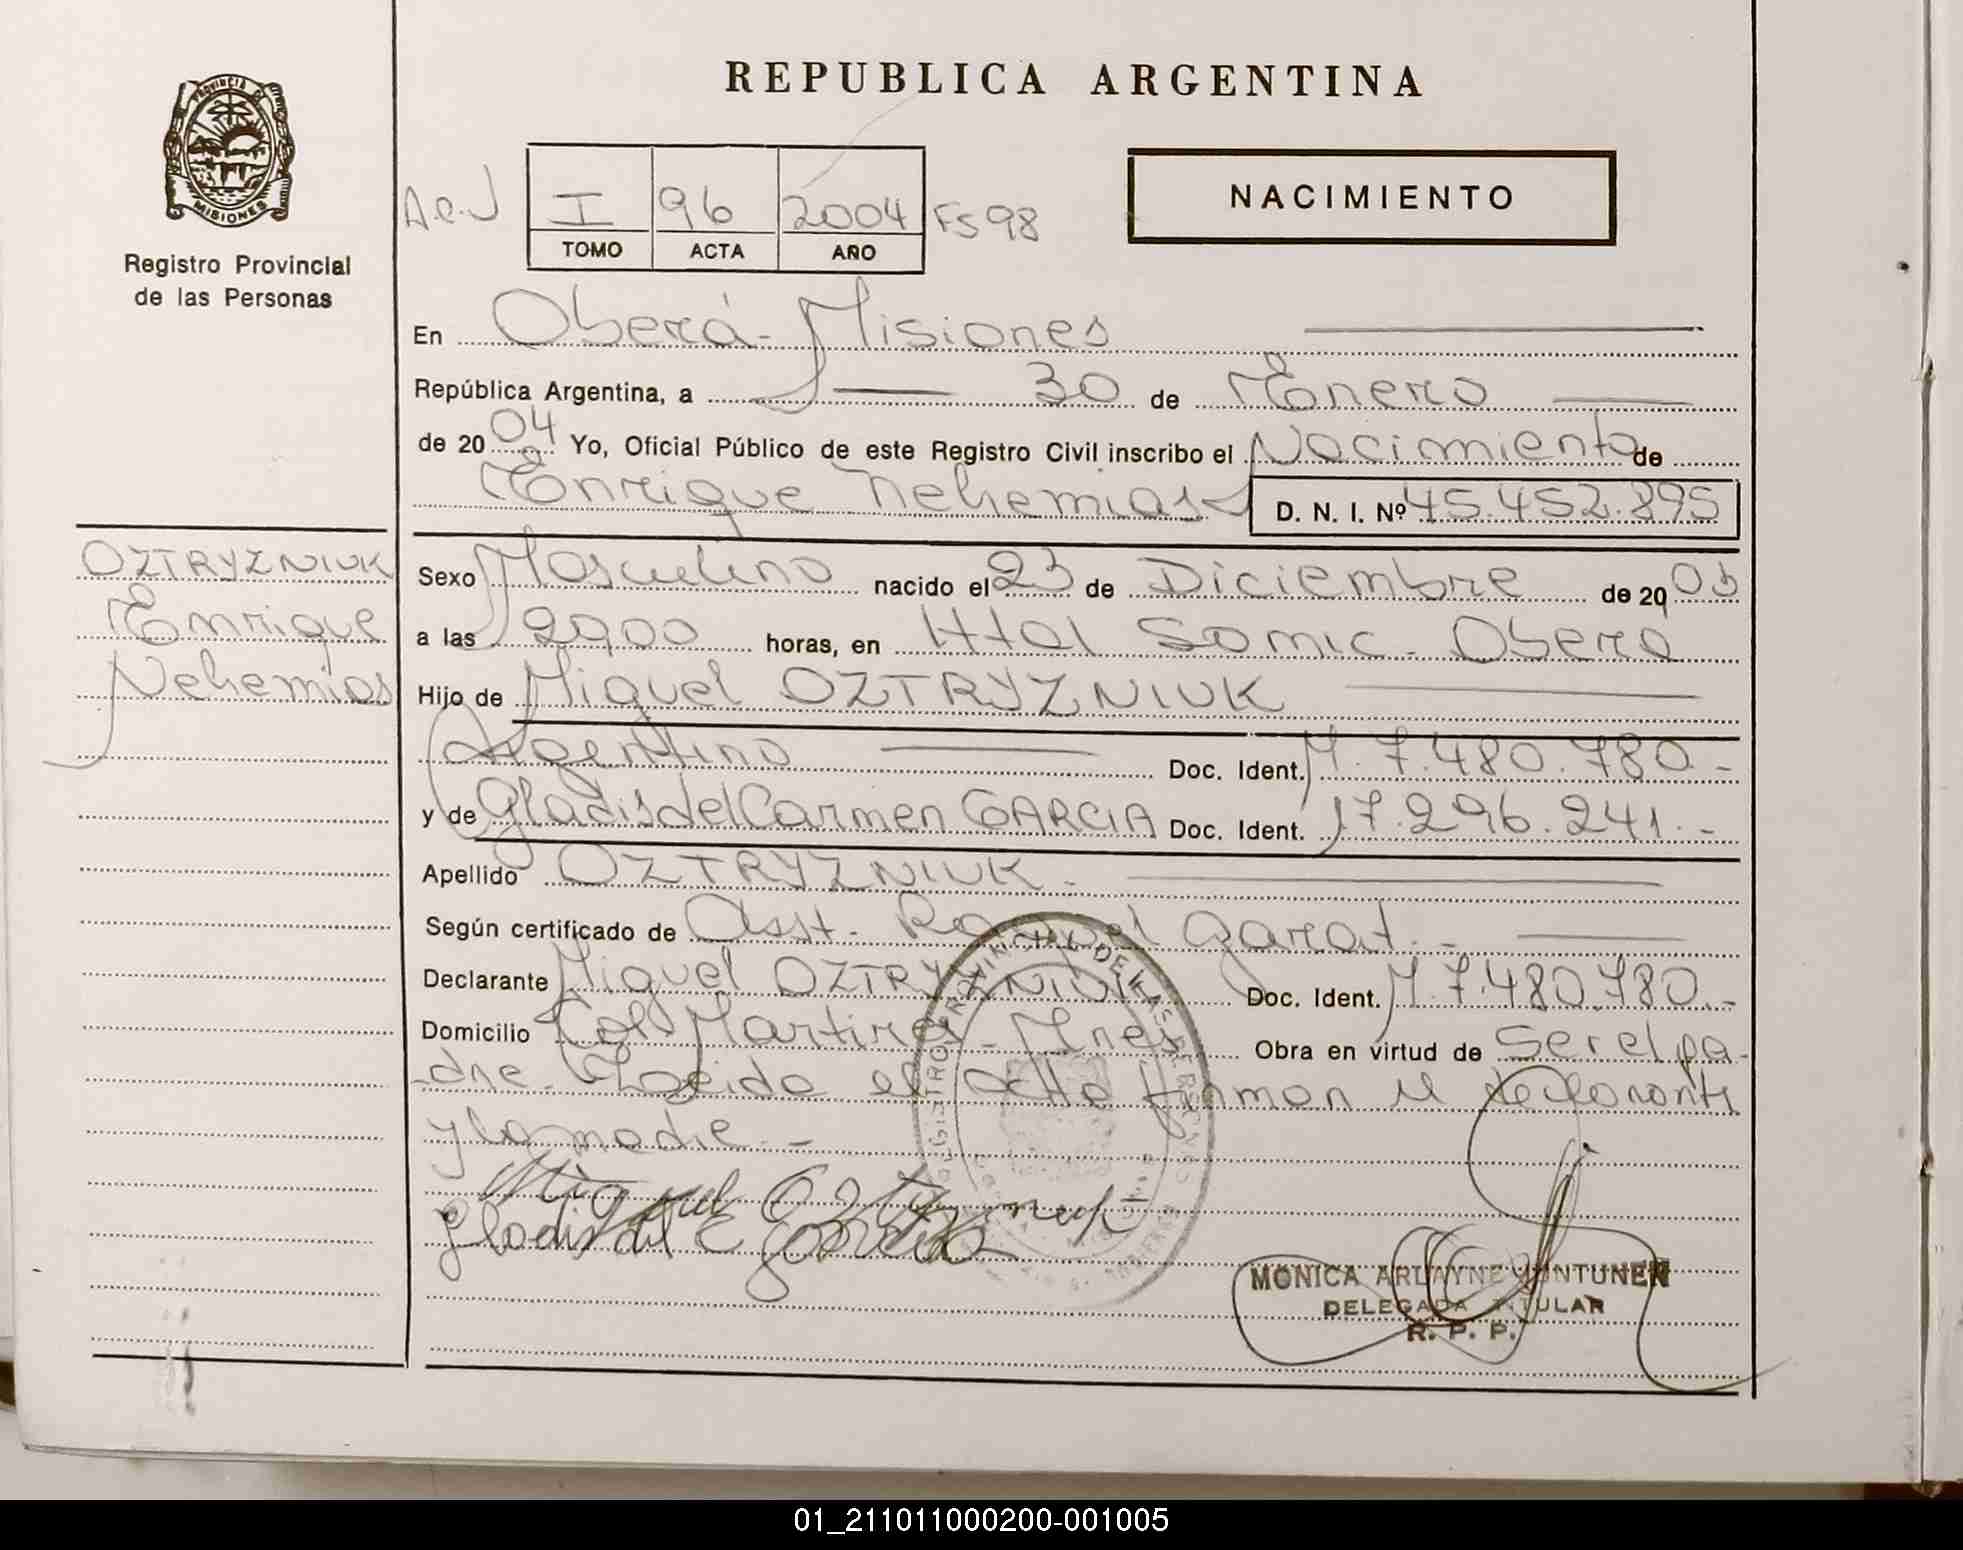 REPUBLICA ARGENTINA
PROVINCIA DE
MISIONES
Registro Provincial
de las Personas
I 96 2004 Fs 98
TOMO ACTA AÑO
NACIMIENTO
En Oberá - Misiones
República Argentina, a 30 de Enero
de 2004 Yo, Oficial Público de este Registro Civil inscribo el Nacimiento de
Enrique Nehemias D. N. I. Nº 45.452.895
OZTRYZNIUK
Enrique
Nehemias
Sexo Masculino nacido el 23 de Diciembre de 2003
a las horas, en Htal Samic - Oberá
Hijo de Miguel OZTRYZNIUK
Argentino Doc. Ident. M. 7.480.780.-
y de Gladis del Carmen GARCIA Doc. Ident. 17.296.241.-
Apellido OZTRYZNIUK.-
Según certificado de Obst. Raquel Garat.-
Declarante Miguel OZTRYZNIUK Doc. Ident. M. 7.480.780.-
Domicilio Col Martires - Mnes Obra en virtud de ser el pa-
-dre. Leida el acta firman el declarante
y la madre.-
Miguel
Gladis del C
REGISTRO PROVINCIAL DE LAS PERSONAS
MONICA ARLAYNE JUNTUNEN
DELEGADA TITULAR
R. P. P.
01_211011000200-001005